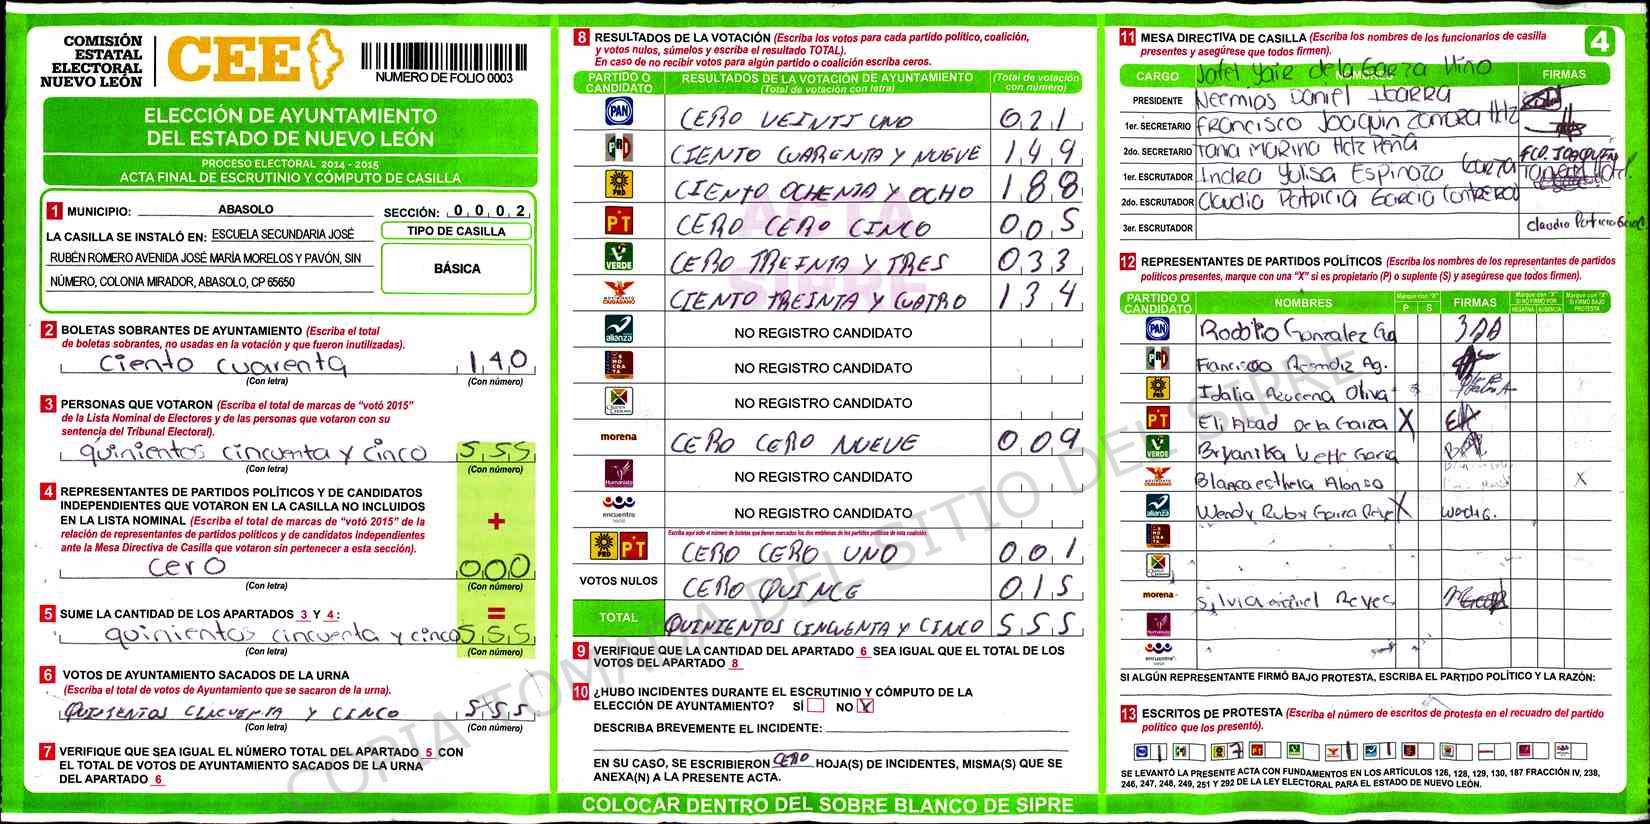 COMISIÓN
ESTATAL
ELECTORAL
NUEVO LEÓN
CEE
NUMERO DE FOLIO 0003
ELECCIÓN DE AYUNTAMIENTO
DEL ESTADO DE NUEVO LEÓN
PROCESO ELECTORAL 2014 - 2015
ACTA FINAL DE ESCRUTINIO Y CÓMPUTO DE CASILLA
1 MUNICIPIO: ABASOLO SECCIÓN: 0 0 0 2
LA CASILLA SE INSTALÓ EN: ESCUELA SECUNDARIA JOSÉ
RUBÉN ROMERO AVENIDA JOSÉ MARÍA MORELOS Y PAVÓN, SIN
NÚMERO, COLONIA MIRADOR, ABASOLO, CP 65650
TIPO DE CASILLA
BÁSICA
2 BOLETAS SOBRANTES DE AYUNTAMIENTO (Escriba el total
de boletas sobrantes, no usadas en la votación y que fueron inutilizadas).
ciento cuarenta 1 4 0
(Con letra) (Con número)
3 PERSONAS QUE VOTARON (Escriba el total de marcas de "votó 2015"
de la Lista Nominal de Electores y de las personas que votaron con su
sentencia del Tribunal Electoral).
quinientos cincuenta y cinco 5 5 5
(Con letra) (Con número)
4 REPRESENTANTES DE PARTIDOS POLÍTICOS Y DE CANDIDATOS
INDEPENDIENTES QUE VOTARON EN LA CASILLA NO INCLUIDOS
EN LA LISTA NOMINAL (Escriba el total de marcas de "votó 2015" de la
relación de representantes de partidos políticos y de candidatos independientes
ante la Mesa Directiva de Casilla que votaron sin pertenecer a esta sección).
+
cero 0 0 0
(Con letra) (Con número)
5 SUME LA CANTIDAD DE LOS APARTADOS 3 Y 4: =
quinientos cincuenta y cinco 5 5 5
(Con letra) (Con número)
6 VOTOS DE AYUNTAMIENTO SACADOS DE LA URNA
(Escriba el total de votos de Ayuntamiento que se sacaron de la urna).
QUINIENTOS CINCUENTA Y CINCO 5 5 5
(Con letra) (Con número)
7 VERIFIQUE QUE SEA IGUAL EL NÚMERO TOTAL DEL APARTADO 5 CON
EL TOTAL DE VOTOS DE AYUNTAMIENTO SACADOS DE LA URNA
DEL APARTADO 6
8 RESULTADOS DE LA VOTACIÓN (Escriba los votos para cada partido político, coalición,
y votos nulos, súmelos y escriba el resultado TOTAL).
En caso de no recibir votos para algún partido o coalición escriba ceros.
PARTIDO O CANDIDATO RESULTADOS DE LA VOTACIÓN DE AYUNTAMIENTO (Total de votación con letra) (Total de votación con número)
PAN CERO VEINTI UNO 0 2 1
PRI CIENTO CUARENTA Y NUEVE 1 4 9
PRD CIENTO OCHENTA Y OCHO 1 8 8
PT CERO CERO CINCO 0 0 5
VERDE CERO TREINTA Y TRES 0 3 3
MOVIMIENTO CIUDADANO CIENTO TREINTA Y CUATRO 1 3 4
alianza NO REGISTRO CANDIDATO
NO REGISTRO CANDIDATO
NO REGISTRO CANDIDATO
morena CERO CERO NUEVE 0 0 9
Humanista NO REGISTRO CANDIDATO
encuentro social NO REGISTRO CANDIDATO
Escriba aquí solo el número de boletas que tienen marcados los dos emblemas de los partidos políticos de esta coalición.
PRD PT CERO CERO UNO 0 0 1
VOTOS NULOS CERO QUINCE 0 1 5
TOTAL QUINIENTOS CINCUENTA Y CINCO 5 5 5
ACTA
SIPRE
9 VERIFIQUE QUE LA CANTIDAD DEL APARTADO 6 SEA IGUAL QUE EL TOTAL DE LOS
VOTOS DEL APARTADO 8
10 ¿HUBO INCIDENTES DURANTE EL ESCRUTINIO Y CÓMPUTO DE LA
ELECCIÓN DE AYUNTAMIENTO? SÍ NO X
DESCRIBA BREVEMENTE EL INCIDENTE:
EN SU CASO, SE ESCRIBIERON CERO HOJA(S) DE INCIDENTES, MISMA(S) QUE SE
ANEXA(N) A LA PRESENTE ACTA.
COLOCAR DENTRO DEL SOBRE BLANCO DE SIPRE
11 MESA DIRECTIVA DE CASILLA (Escriba los nombres de los funcionarios de casilla
presentes y asegúrese que todos firmen).
4
CARGO NOMBRES FIRMAS
Jafet Yair de la Garza Niño
PRESIDENTE Neemias Daniel Ibarra
1er. SECRETARIO Francisco Joaquin Zamora Htz
2do. SECRETARIO Tania Marina Htz Peña FCO. JOAQUIN
1er. ESCRUTADOR Indra Yulisa Espinoza Garza
2do. ESCRUTADOR Claudia Patricia Garcia Contreras
3er. ESCRUTADOR Claudia Patricia Garcia C.
12 REPRESENTANTES DE PARTIDOS POLÍTICOS (Escriba los nombres de los representantes de partidos
políticos presentes, marque con una "X" si es propietario (P) o suplente (S) y asegúrese que todos firmen).
PARTIDO O CANDIDATO NOMBRES Marque con "X" P S FIRMAS Marque con "X" SI NO FIRMÓ POR NEGATIVA AUSENCIA Marque con "X" SI FIRMÓ BAJO PROTESTA
PAN Rodolfo Gonzalez Gza
PRI Francisco Ag.
PRD Idalia Azucena Oliva
PT Eli Abad De la Garza X
VERDE Bryanika Ivette Garcia
MOVIMIENTO CIUDADANO Blanca esthela Alonso X
alianza Wendy Ruby Garza Reyes X Wendy G.
morena Silvia Reyes
Humanista
encuentro social
SI ALGÚN REPRESENTANTE FIRMÓ BAJO PROTESTA, ESCRIBA EL PARTIDO POLÍTICO Y LA RAZÓN:
13 ESCRITOS DE PROTESTA (Escriba el número de escritos de protesta en el recuadro del partido
político que los presentó).
SE LEVANTÓ LA PRESENTE ACTA CON FUNDAMENTOS EN LOS ARTÍCULOS 126, 128, 129, 130, 187 FRACCIÓN IV, 238,
246, 247, 248, 249, 251 Y 292 DE LA LEY ELECTORAL PARA EL ESTADO DE NUEVO LEÓN.
COPIA TOMADA DEL SITIO DEL SIPRE